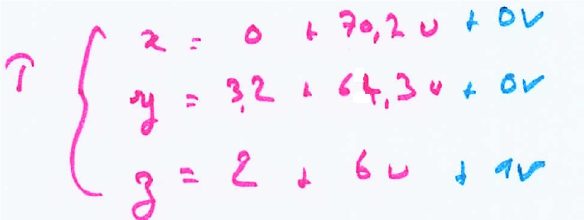 π { x = 0 + 70,2 u + 0v
y = 3,2 + 64,3 u + 0v
z = 2 + 6 u + 1v